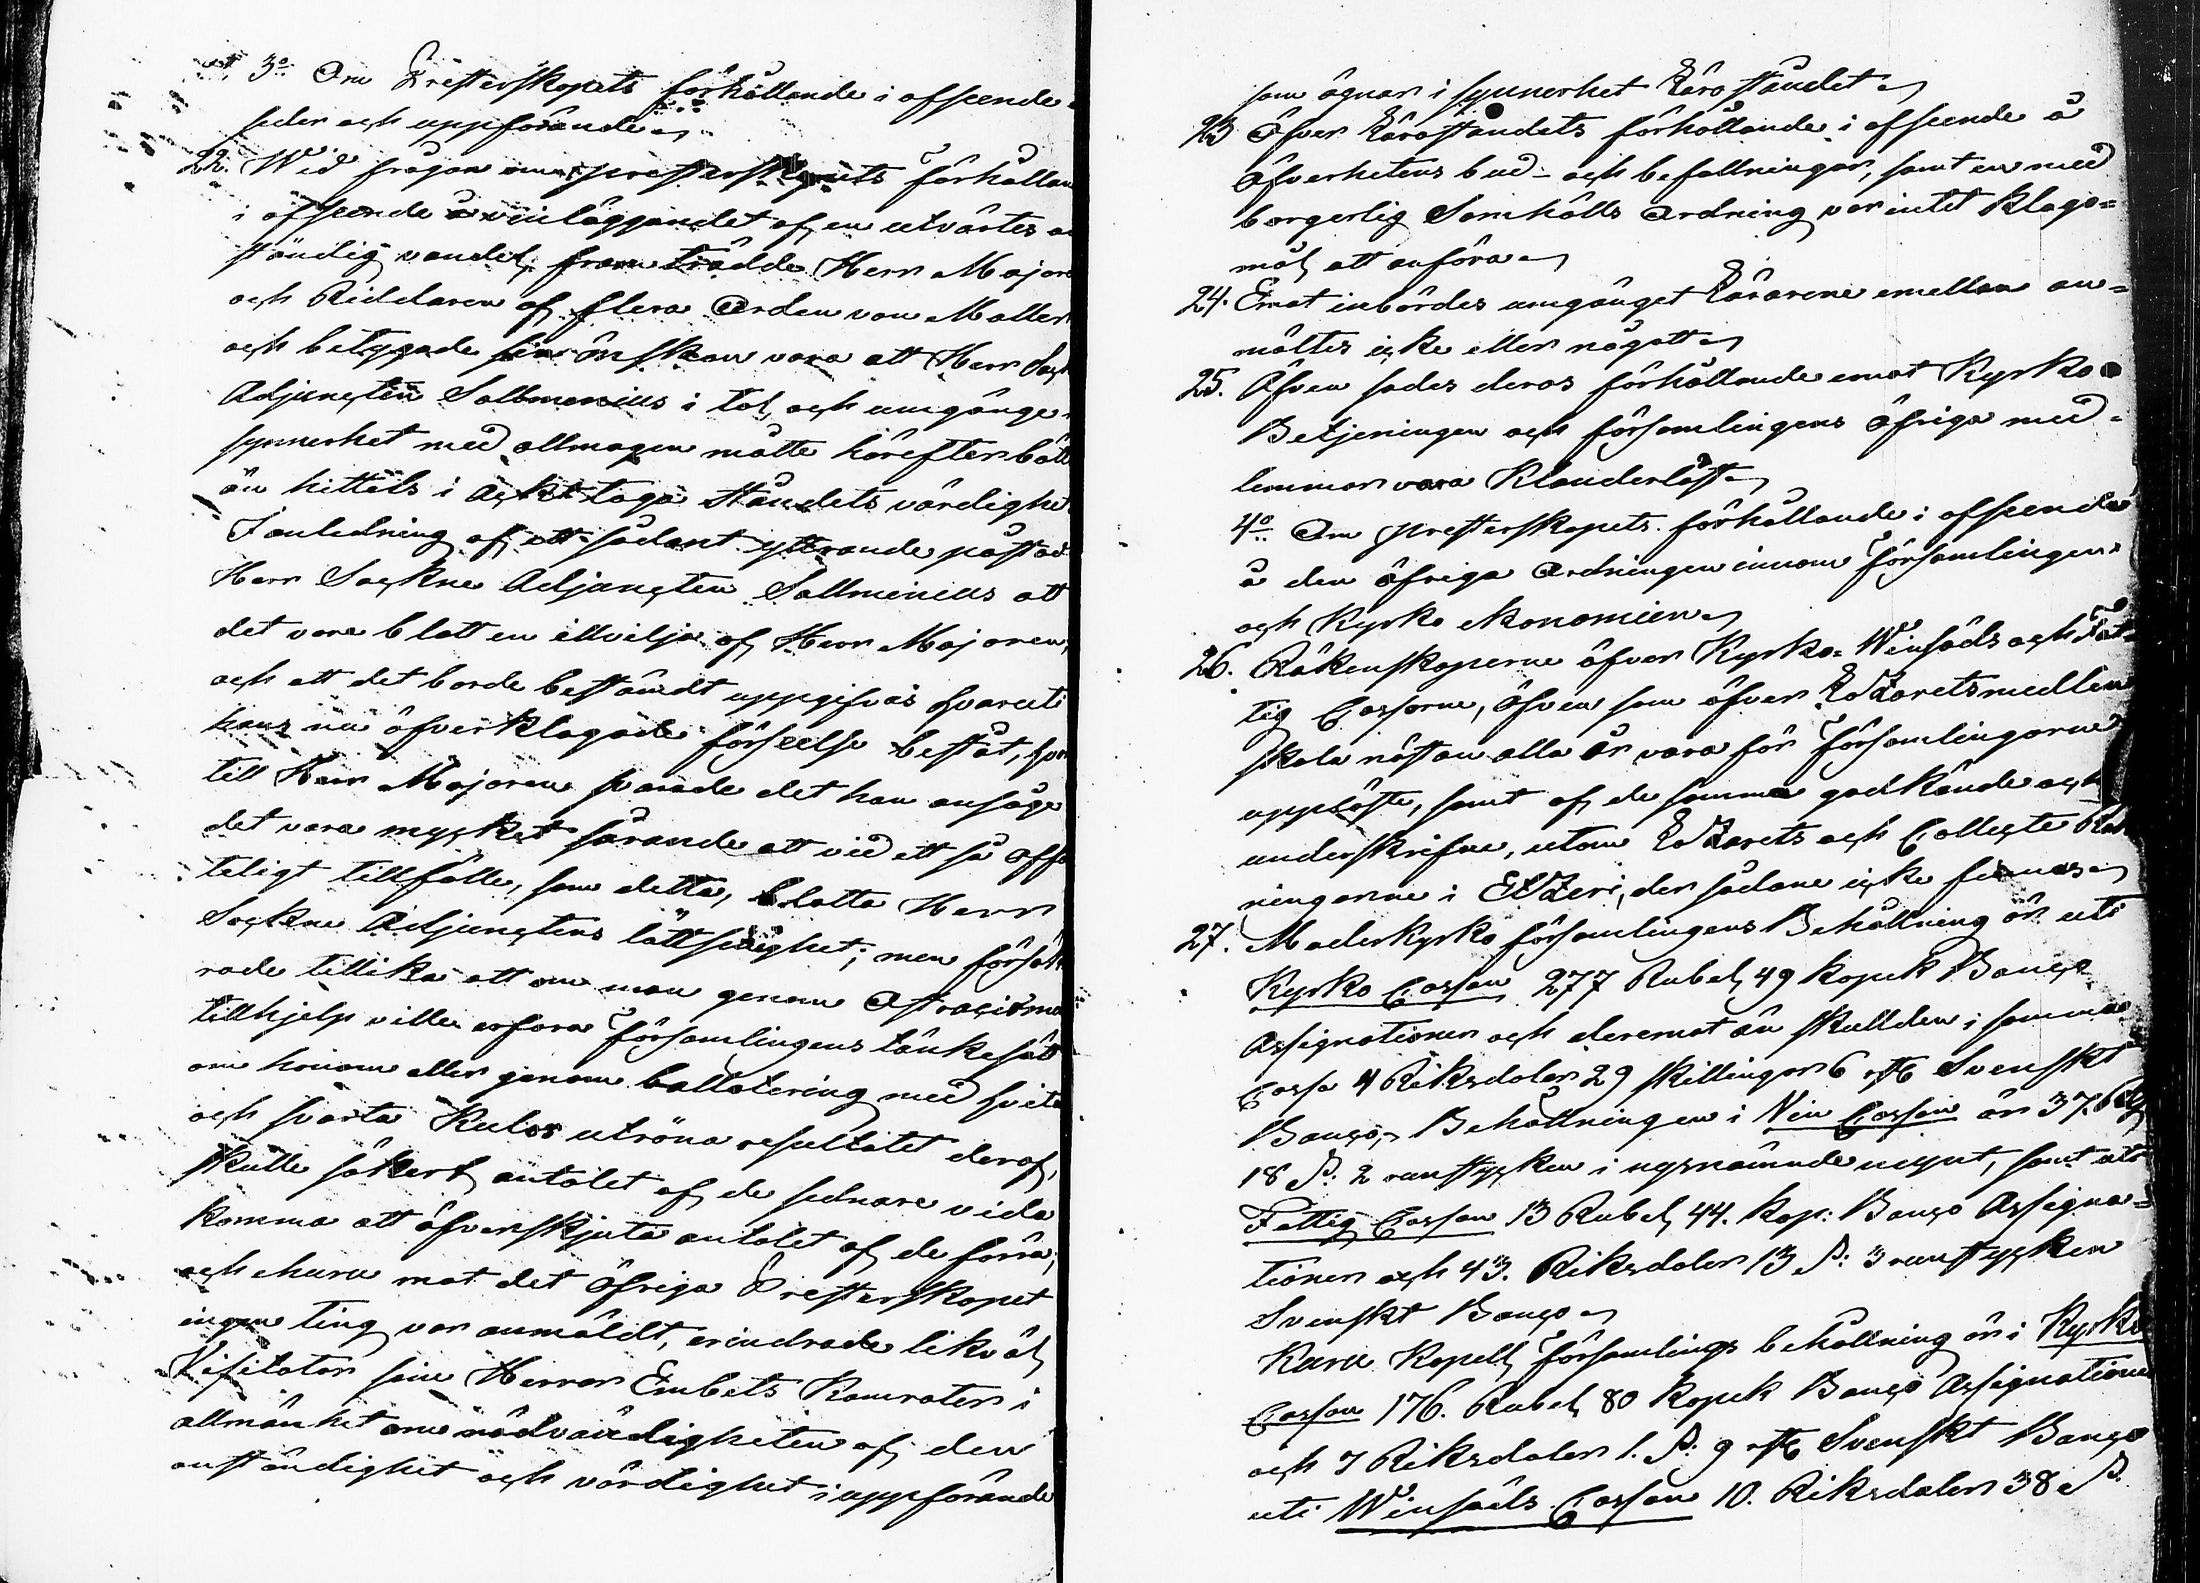 3:o Om Presterskapets förhållande i afseende
seder och uppförande
22. Wid frågan om presterskapets förhållan
i afseende å vinläggandet af en utvärtes a
ständig vandel, framträdde Herr Majore
och Riddaren af flera Orden von
och betygade sin önskan vara att Herr Sock
Adjuncten Sallmenius i tal och umgänge
synnerhet med allmogen måtte härefter bätt
än hittils i ackt taga Ståndets värdighet
I anledning af ett sådant yttrande påstod
Herr Sockne Adjuncten Sallmenius att
det vore blott en illvilja af Herr Majoren,
och att det borde bestämdt uppgifvas hvaruti
hans nu öfverklagade förseelse bestått, hvar
till Herr Majoren svarade det han ansåge
det vara mycket sårande att vid ett så offe
teligt tillfälle, som detta, blotta Herr
Sockne Adjunctens lättsinighet; men försäk
rade tillika att om man genom Ostracismen
tillhjelp ville erfara Församlingens tänkesätt
om honom eller genom ballotering med hvita
och svarta Kulor utröna resultatet deraf,
skulle säkert antalet af de sednare vida
komma att öfverskjuta antalet af de förra,
och ehuru mot det öfriga Presterskapet
ingen ting var anmäldt, erindrade likväl
Visitator sine Herrar Embets Kamrater i
allmänhet om nödvändigheten af den
anständighet och värdighet i uppförande
som ägnar i synnerhet Lärostandet
23 Öfver Lärostandets förhållande i afseende å
Öfverhetens bud- och befallningar, samt en med
borgerlig Samhälls Ordning var intet Klago=
mål att anföra
24. Emot inbördes umgänget Lärarene emellan an=
mältes icke eller något
25. Äfven sades deras förhållande emot Kyrko
Betjeningen och församlingens öfriga med=
lemmar vara Klanderlöst
4:o Om presterskapets förhållande i afseende
å den öfriga Ordningen innom Församlingen
och Kyrko ekonomien
26. Räkenskaperne öfver Kyrko- Winsäds och Fat
tig Cassorne, äfven som öfver Lazaretsmedlen
skola nästan alla år vara för Församlingarne
uppläste, samt af de samma godkände och
underskrifne, utom Lazarets och Collecte Räk
ningarne i Etzeri, der sådane icke finnas
27. Moderkyrko församlingens Behållning är uti
Kyrko Cassan 277 Rubel 49 kopek Banco
Assignationer och deremot än skulden i samma
Cassa 4 Riksdaler 29 skillingar 6 rst Svenskt
Banco, Behållningen i Vin Cassan är 37. Rdr
18 s: 2 runstycken i nysnämnde mynt, samt uti
Fattig Cassan 13 Rubel 44. Kop: Banco Assigna=
tioner och 43. Riksdaler 13 s: 3 runstycken
Svenskt Banco
Kapell Församlings behållning är i Kyrko
Cassan 176. Rubel 80 kopek Banco Assignationer
och 7 Riksdaler 1. s: 9 rst Svenskt Banco
uti Winsäds Cassan 10. Riksdaler 38 s.